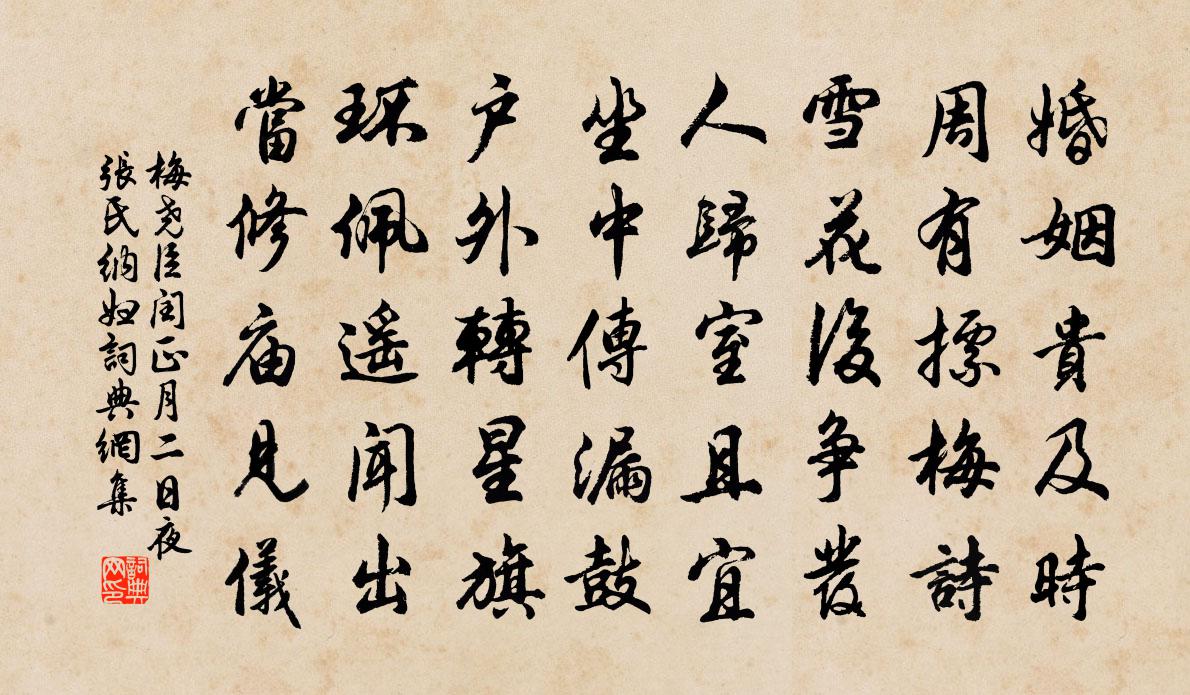 婚姻貴及時
周有摽梅詩
雪花後爭發
人歸室且宜
坐中傳漏鼓
户外轉星旗
环佩遥聞出
當修庙見儀
梅堯臣閏正月二日夜
張氏納婦詞典網集
詞典
网印